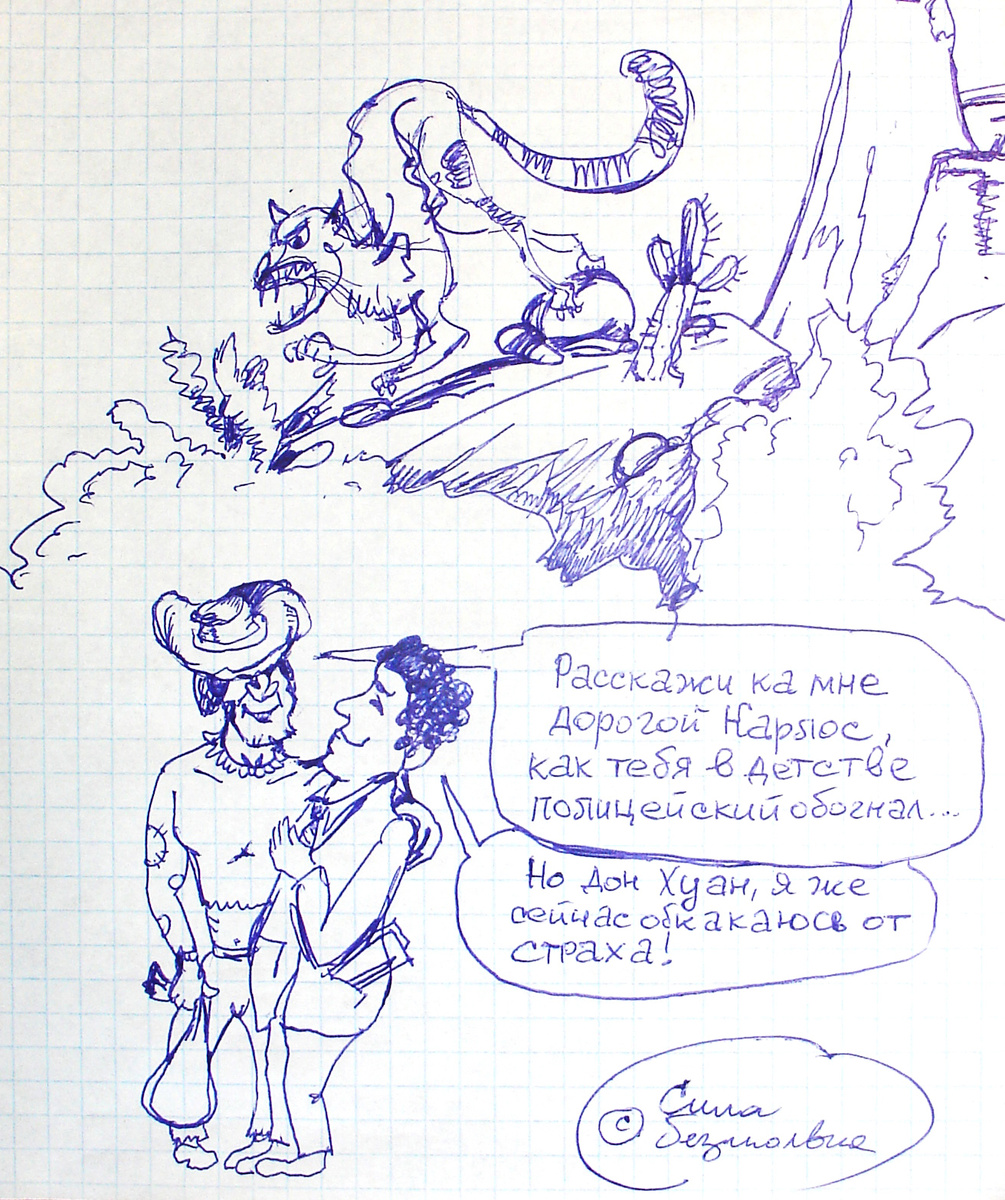 Расскажи ка мне
дорогой Нарлос,
как тебя в детстве
полицейский обогнал...
Но дон Хуан, я же
сейчас обкакаюсь от
страха!
© Сила
безмолвия